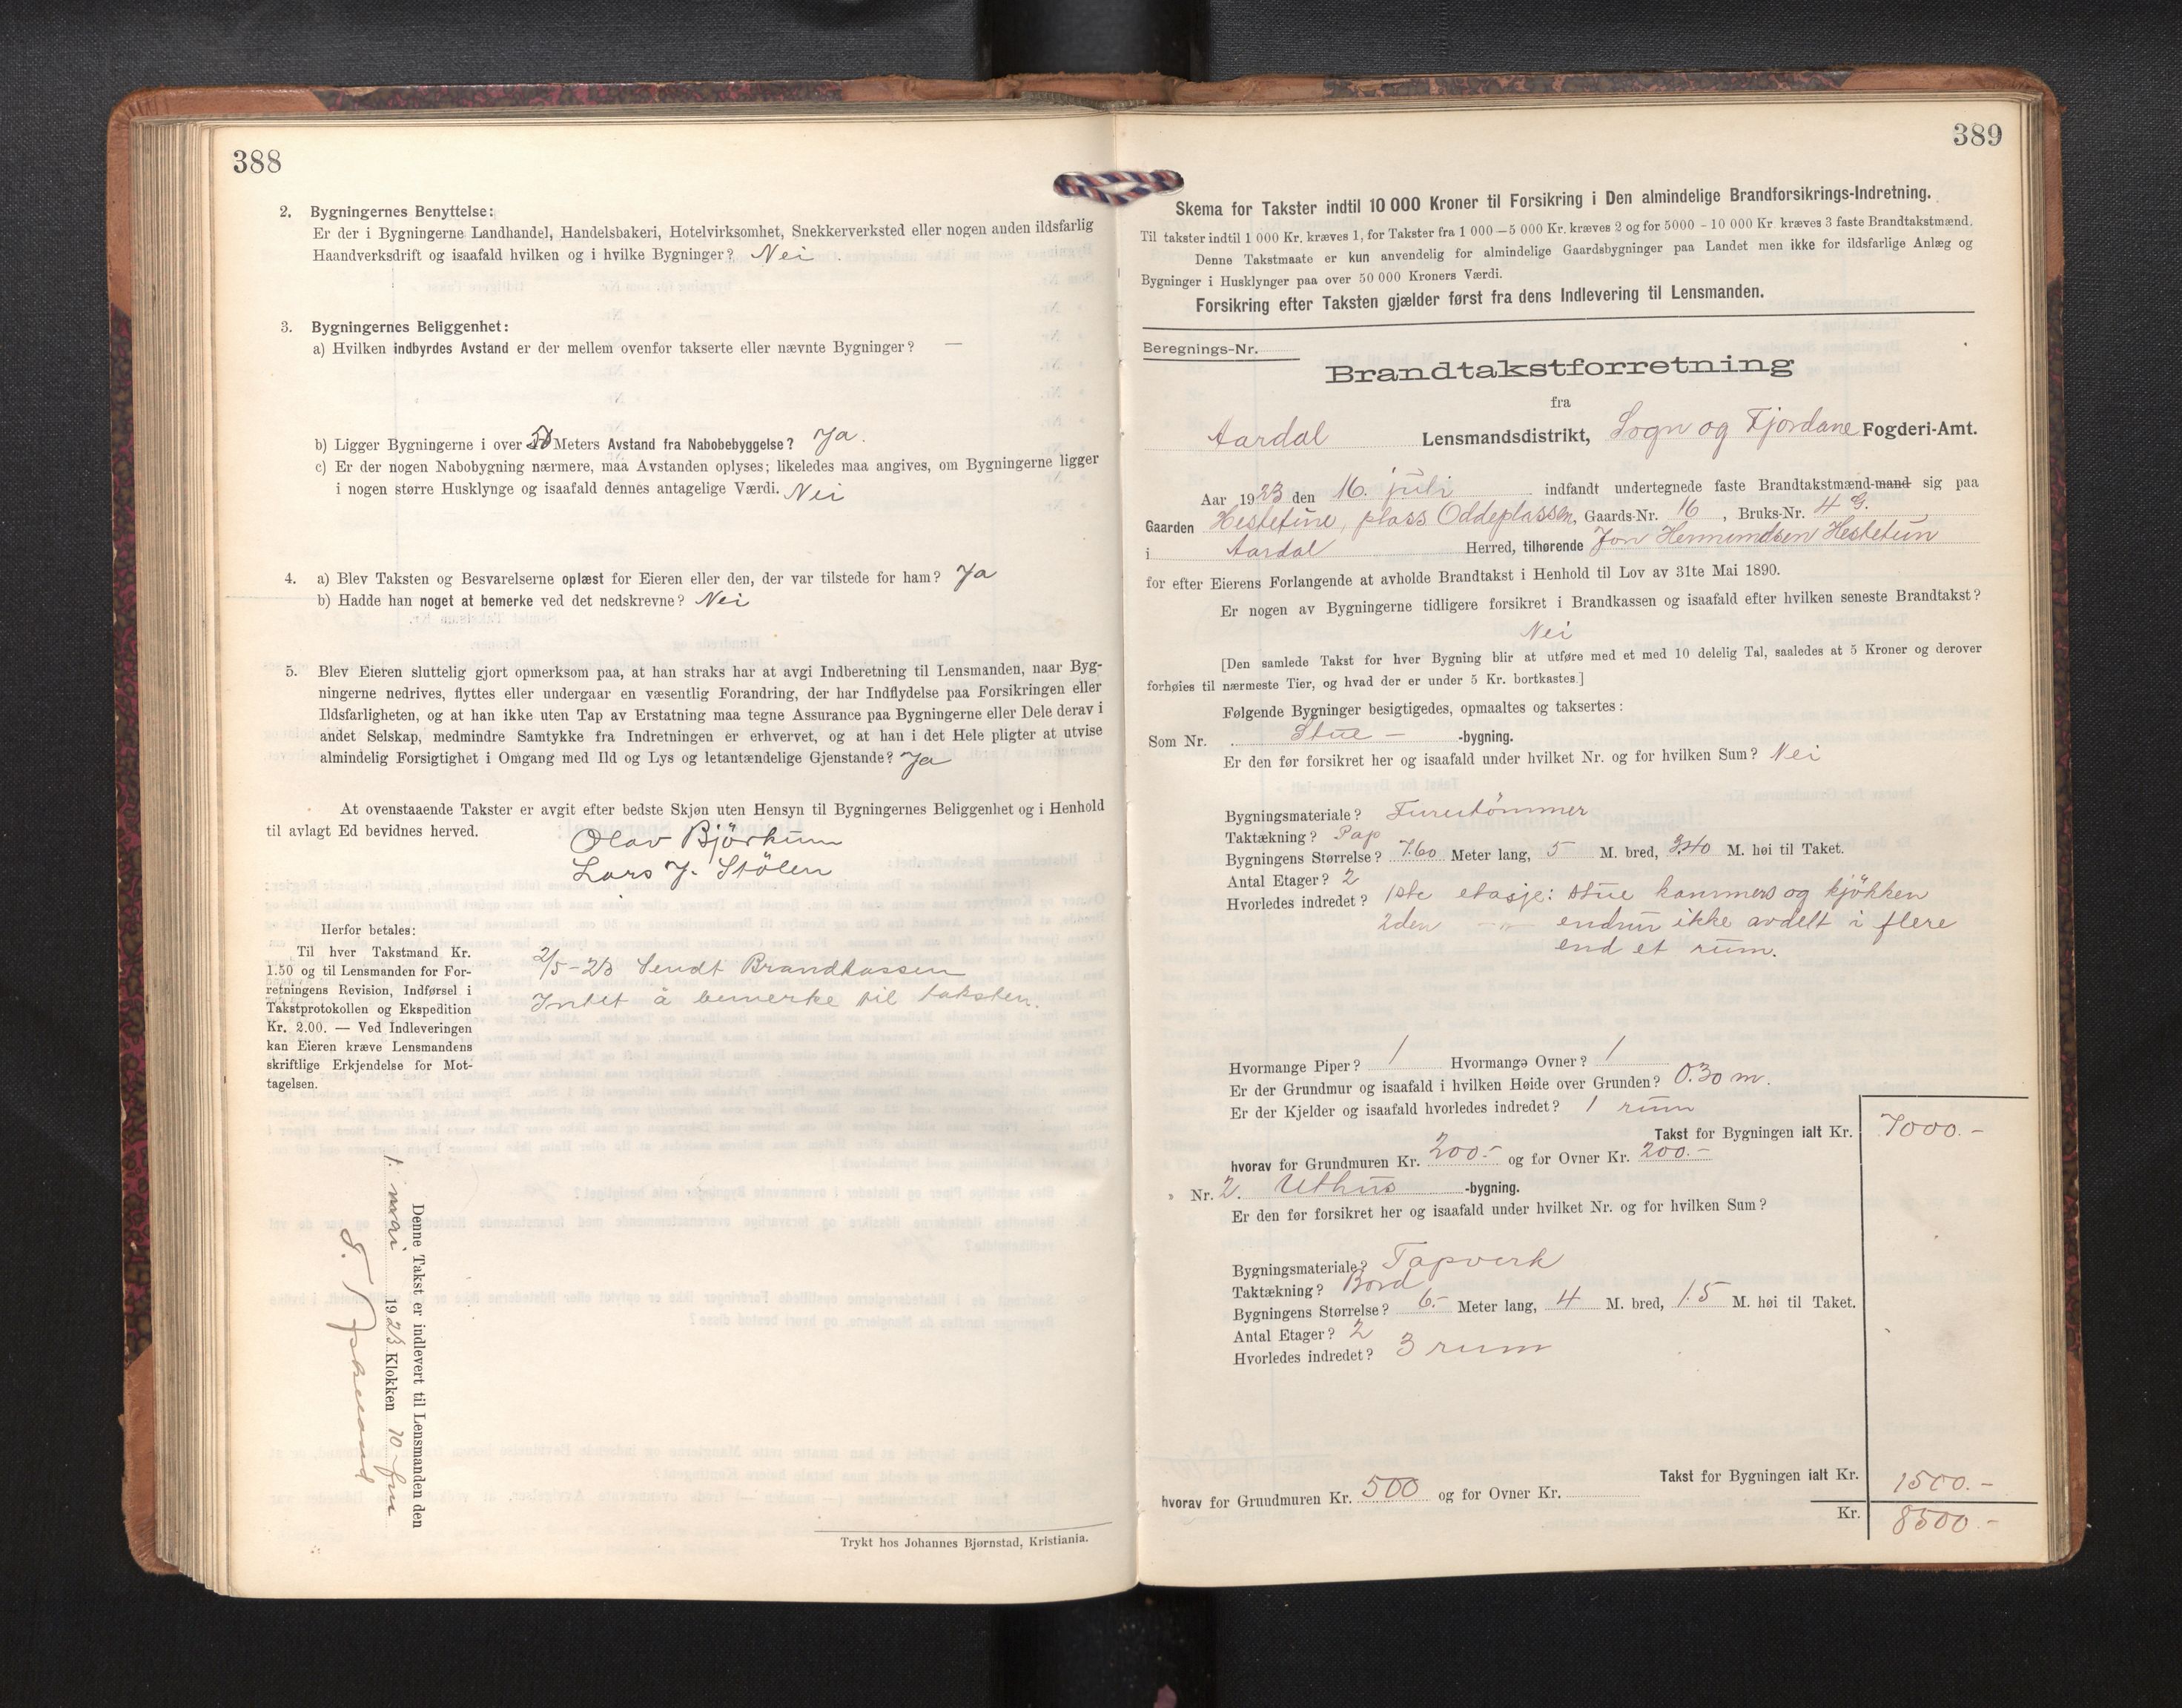 388
2. Bygningernes Benyttelse:
Er der i Bygningerne Landhandel, Handelsbakeri, Hotelvirksomhet, Snekkerverksted eller nogen anden ildsfarlig
Haandverksdrift og isaafald hvilken og i hvilke Bygninger? Nei
3. Bygningernes Beliggenhet:
a) Hvilken indbyrdes Avstand er der mellem ovenfor takserte eller nævnte Bygninger? —
b) Ligger Bygningerne i over Meters Avstand fra Nabobebyggelse? Ja.
c) Er der nogen Nabobygning nærmere, maa Avstanden oplyses; likeledes maa angives, om Bygningerne ligger
i nogen større Husklynge og isaafald dennes antagelige Værdi. Nei
4. a) Blev Taksten og Besvarelserne oplæst for Eieren eller den, der var tilstede for ham? Ja
b) Hadde han noget at bemerke ved det nedskrevne? Nei
5. Blev Eieren sluttelig gjort opmerksom paa, at han straks har at avgi Indberetning til Lensmanden, naar Byg-
ningerne nedrives, flyttes eller undergaar en væsentlig Forandring, der har Indflydelse paa Forsikringen eller
Ildsfarligheten, og at han ikke uten Tap av Erstatning maa tegne Assurance paa Bygningerne eller Dele derav i
andet Selskap, medmindre Samtykke fra Indretningen er erhvervet, og at han i det Hele pligter at utvise
almindelig Forsigtighet i Omgang med Ild og Lys og letantændelige Gjenstande? Ja
At ovenstaaende Takster er avgit efter bedste Skjøn uten Hensyn til Bygningernes Beliggenhet og i Henhold
til avlagt Ed bevidnes herved.
Olav Bjørkum
Lars J. Stölen
Herfor betales:
Til hver Takstmand Kr.
1.50 og til Lensmanden for For-
retningens Revision, Indførsel i
Takstprotokollen og Ekspedition
Kr. 2.00. — Ved Indleveringen
kan Eieren kræve Lensmandens
skriftlige Erkjendelse for Mot-
tagelsen.
2/5-23 Sendt Brandkassen
Intet å bemerke til taksten.
Denne Takst er indlevert til Lensmanden den
1. mai 1923 Klokken 10 fm
Trykt hos Johannes Bjørnstad, Kristiania.
389
Skema for Takster indtil 10 000 Kroner til Forsikring i Den almindelige Brandforsikrings-Indretning.
Til takster indtil 1 000 Kr. kræves 1, for Takster fra 1 000 — 5 000 Kr. kræves 2 og for 5000 - 10 000 Kr kræves 3 faste Brandtakstmænd.
Denne Takstmaate er kun anvendelig for almindelige Gaardsbygninger paa Landet men ikke for ildsfarlige Anlæg og
Bygninger i Husklynger paa over 50 000 Kroners Værdi.
Forsikring efter Taksten gjælder først fra dens Indlevering til Lensmanden.
Beregnings-Nr.
Brandtakstforretning
fra
Aardal Lensmandsdistrikt, Sogn og Fjordane Fogderi-Amt.
Aar 1923 den 16. juli indfandt undertegnede faste Brandtakstmænd-mand sig paa
Gaarden Hestetune, plass Oddeplassen, Gaards-Nr. 16, Bruks-Nr. 4 G.
i Aardal Herred, tilhørende Jon Hestetun
for efter Eierens Forlangende at avholde Brandtakst i Henhold til Lov av 31te Mai 1890.
Er nogen av Bygningerne tidligere forsikret i Brandkassen og isaafald efter hvilken seneste Brandtakst?
Nei
[Den samlede Takst for hver Bygning blir at utføre med et med 10 delelig Tal, saaledes at 5 Kroner og derover
forhøies til nærmeste Tier, og hvad der er under 5 Kr. bortkastes.]
Følgende Bygninger besigtigedes, opmaaltes og taksertes:
Som Nr. Stue - -bygning.
Er den før forsikret her og isaafald under hvilket Nr. og for hvilken Sum? Nei
Bygningsmateriale? Furutömmer
Taktækning? Pap
Bygningens Størrelse? 7.60 Meter lang, 5 M. bred, 3.40 M. høi til Taket.
Antal Etager? 2
Hvorledes indredet? 1ste etasje: stue kammers og kjökken
2den -"- endnu ikke avdelt i flere
end et rum.
Hvormange Piper? 1 Hvormange Ovner? 1
Er der Grundmur og isaafald i hvilken Høide over Grunden? 0.30 m.
Er der Kjelder og isaafald hvorledes indredet? 1 rum
Takst for Bygningen ialt Kr. 7000.-
hvorav for Grundmuren Kr. 200.- og for Ovner Kr. 200.-
» Nr. 2. Uthus -bygning.
Er den før forsikret her og isaafald under hvilket Nr. og for hvilken Sum?
Bygningsmateriale? Tapverk
Taktækning? Bord
Bygningens Størrelse? 6.- Meter lang, 4 M. bred, 1.5 M. høi til Taket.
Antal Etager? 2
Hvorledes indredet? 3 rum
Takst for Bygningen ialt Kr. 1500.-
hvorav for Grundmuren Kr. 500 og for Ovner Kr.
Kr. 8500.-